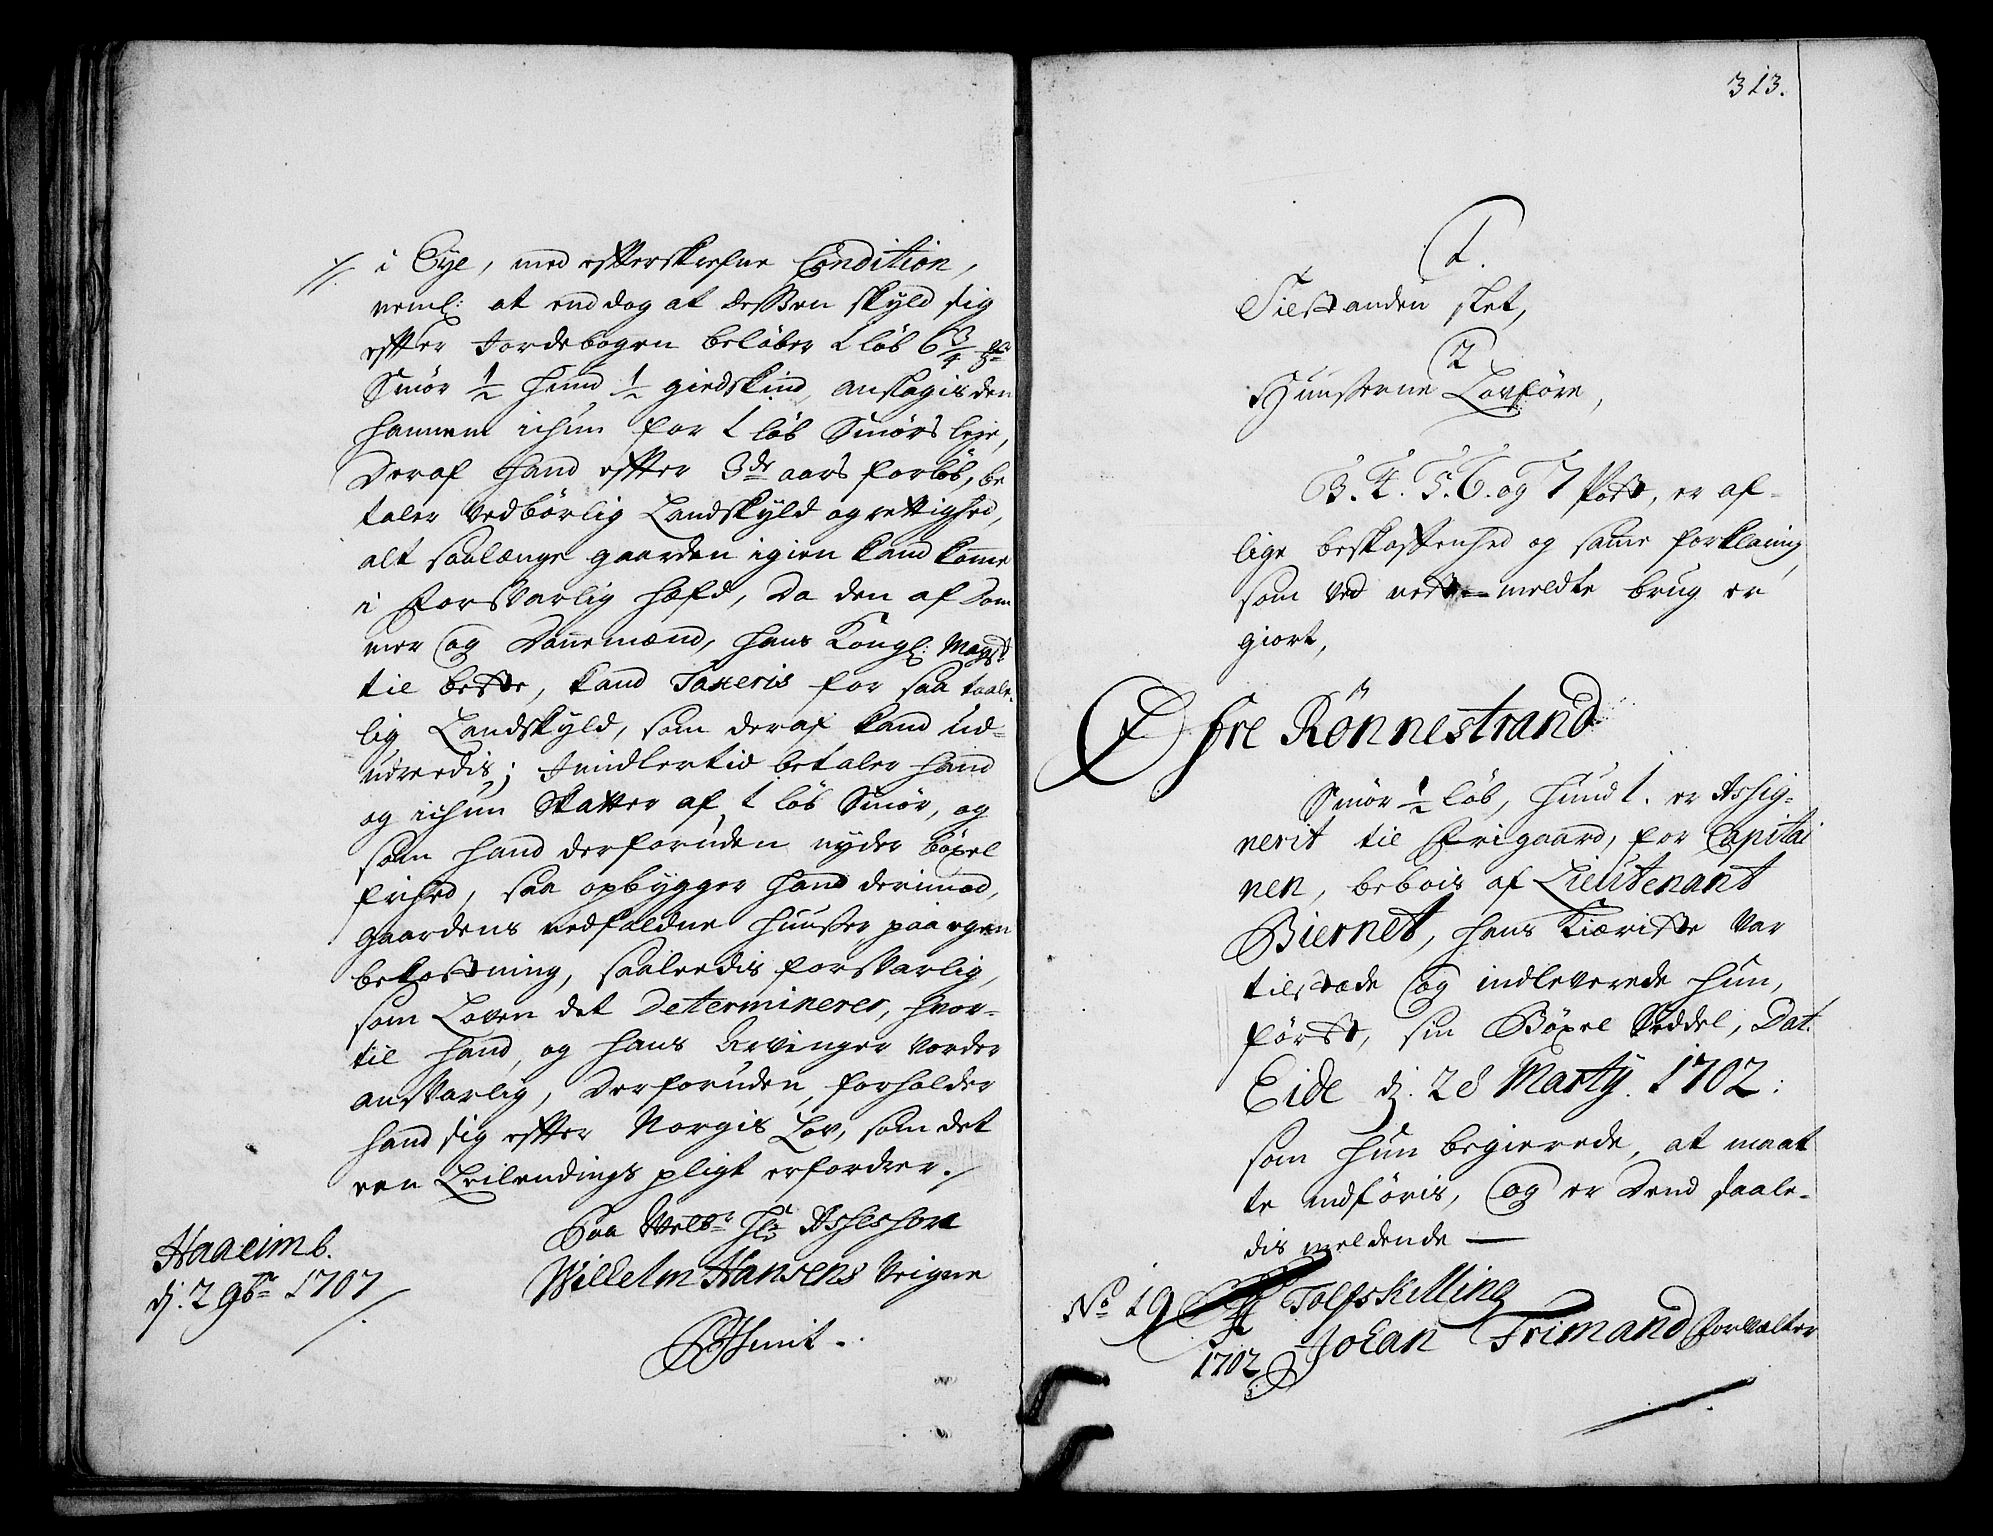 i Eye, med efterskrefne Condition,
neml: at enddog at dessen skyld sig
efter Jordebogen beløber 1 løb 6 3/4
Smør 1/2 hund 1/2 giedskind, anslagis den
hannem ichun for 1 løb Smørs leje,
deraf hand efter 3de aars forløb, be
taler vedbørlig Landskyld og rettighed,
alt saalænge gaarden igien kand komme
i forsvarlig hæfd, da den af Dom
mer og Dannemænd, hans Kongl: Mayst:
til beste, kand Taxeris for saa taale-
lig Landskyld, som deraf kand ud-
udreedis; Imidlertid betaler hand
og ichun Skatter af 1 løb Smør, og
som hand derforuden nyder böxel
frihed, saa opbygger hand derimod,
gaardens nedfaldne huusser paa egen
bekostning, saaleedis forsvarlig,
som Loven det Determinerer, hvor-
til hand, og hans Arvinger vorder
ansvarlig, derforuden forholder
hand sig efter Norgis Lov, som det
een Leilendings pligt erfordrer./
Paa Welbr Hr Assessor
Wilhelm Hansens Veigne
Smit.
Haaeimb.
dj. 2 9br 1707
313.
1.
Tilstanden slet,
2
Huusserne Lovføre,
3. 4. 5. 6. og 7 Post, er af-
lige beskaffenhed og samme forklaring,
som ved nest-meldte brug er
giort,
Øfre Rönnestrand
Smør 1/2 løb, hund 1. er Assig-
nerit til Frigaard, for Capitai
nen, bebois af Lieutenant
Biernet, hans Kiæriste var
tilstæde og indleverede hun,
først, sin Böxel Seddel, Dat.
Eide dj. 28 Martij. 1702:
som hun begierede, at maat
te indføris, og er dend saale-
dis meldende —
No 19 Tolfskilling
1702 Johan Frimand forvalter